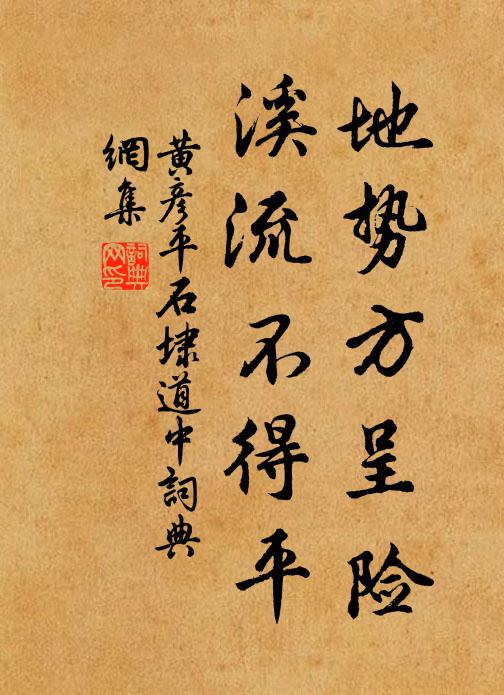 地势方呈险
溪流不得平
黄彦平石埭道中詞典
網集
詞典
网印